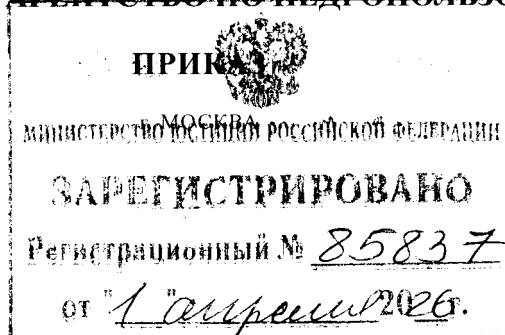 АГЕНТСТВО ПО НЕДРОПОЛЬЗО
ПРИКАЗ
г. МОСКВА
МИНИСТЕРСТВО ЮСТИЦИИ РОССИЙСКОЙ ФЕДЕРАЦИИ
ЗАРЕГИСТРИРОВАНО
Регистрационный № 85837
от "1" апреля 2026г.